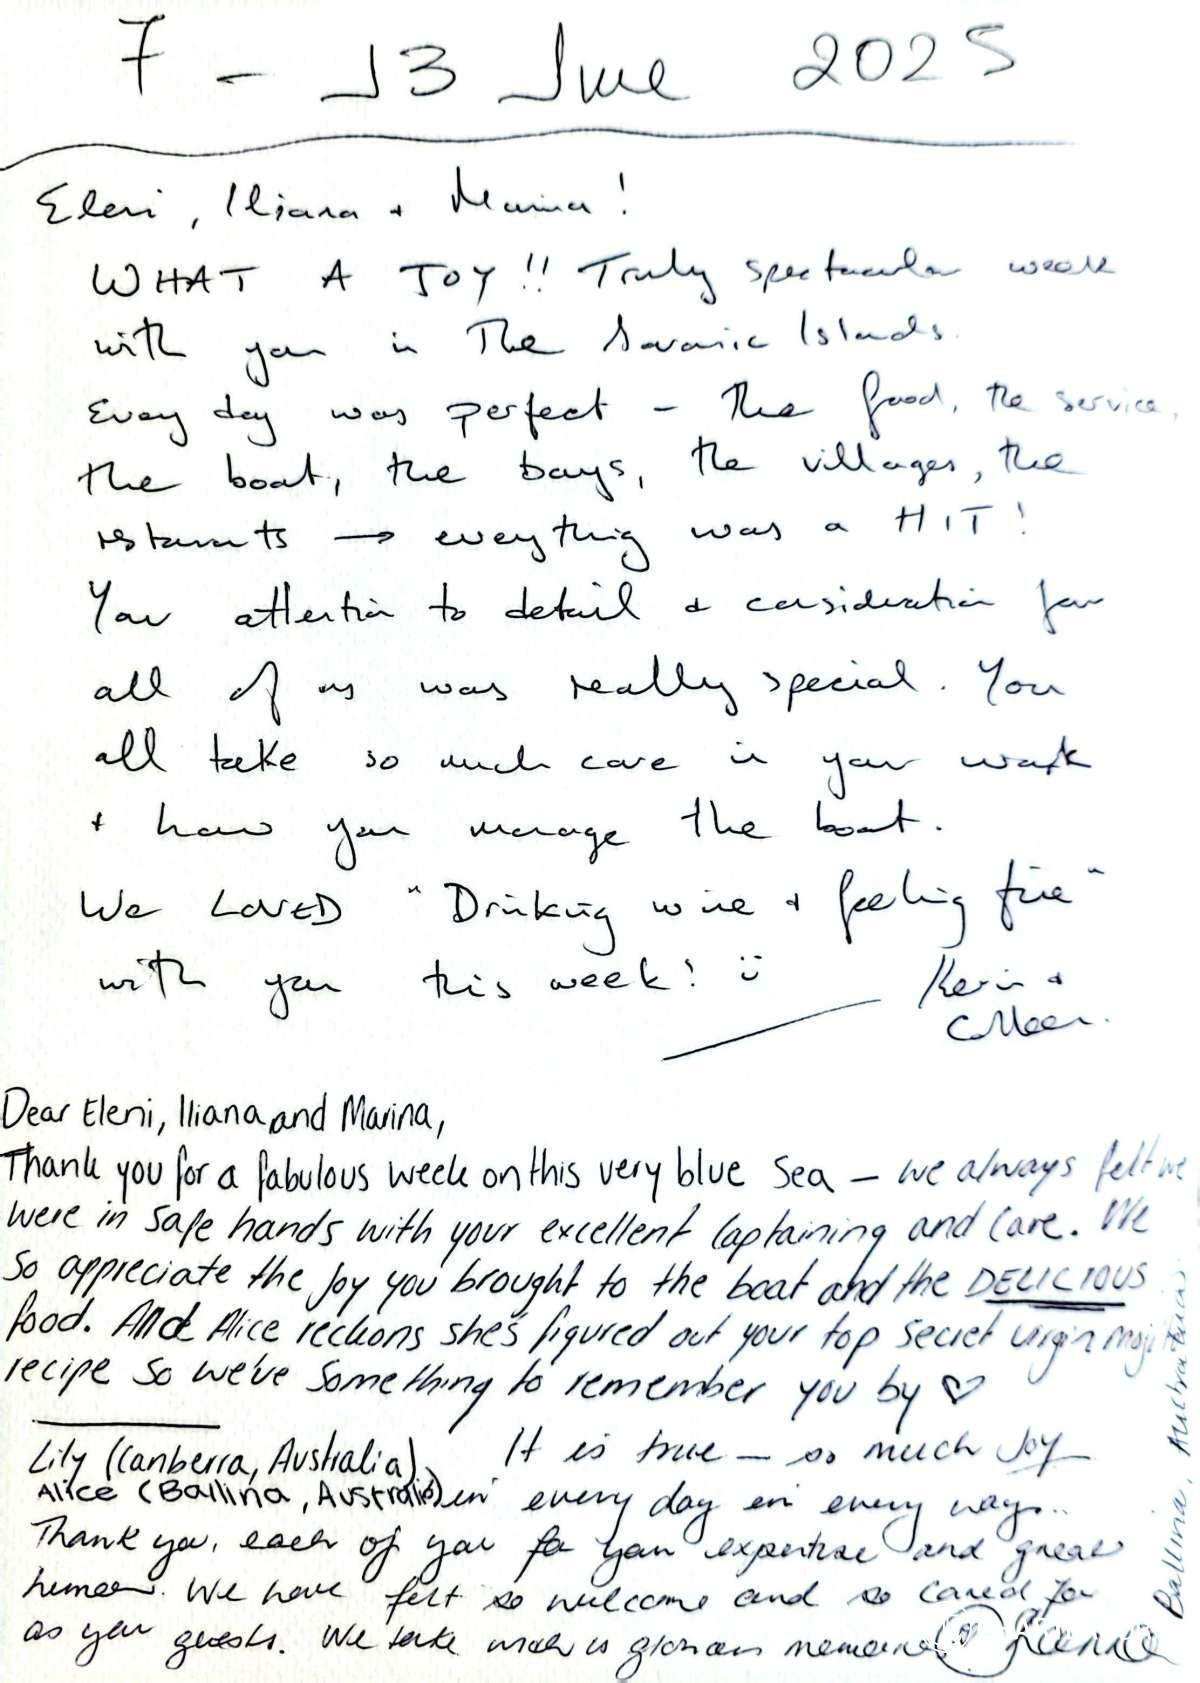 7 - 13 June 2025
Eleni, Iliana + Marina!
WHAT A JOY!! Truly spectacular week
with you in The Saronic Islands.
Every day was perfect - the food, the service,
the boat, the bays, the villages, the
restaurants → everything was a HIT!
Your attention to detail + consideration for
all of us was really special. You
all take so much care in your work
+ how you manage the boat.
We LOVED "Drinking wine + feeling fine"
with you this week! ☺
Kevin +
Colleen.
Dear Eleni, Iliana and Marina,
Thank you for a fabulous week on this very blue sea – we always felt we
were in safe hands with your excellent captaining and care. We
so appreciate the joy you brought to the boat and the DELICIOUS
food. And Alice reckons she's figured out your top secret virgin moji
recipe so we've something to remember you by ♡
Lily (Canberra, Australia)
Alice (Ballina, Australia)
It is true – so much joy
in every day in every way..
Thank you, each of you for your expertise and great
humour. We have felt so welcome and so cared for
as your guests. We take with us glorious memories
Ballina, Australia